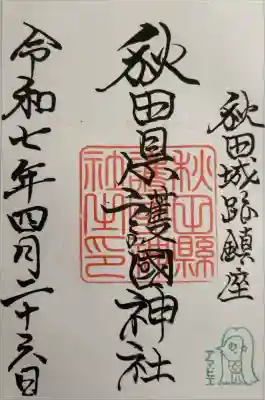 秋田城跡鎮座
秋田県護國神社
秋田縣護國神社之印
令和七年四月二十六日
アマビエ